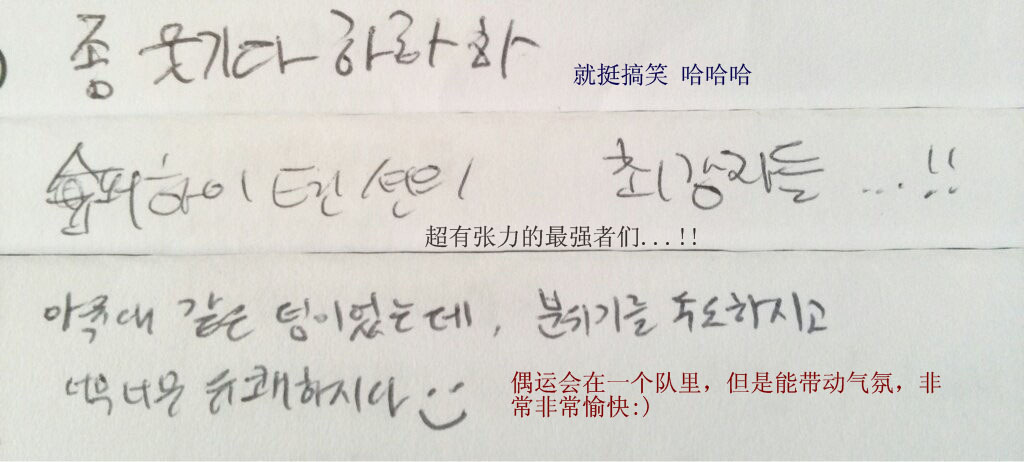 종 웃기다 하하하
就挺搞笑 哈哈哈
슈퍼하이텐션의 최강자들 ...!!
超有张力的最强者们...!!
아육대 같은 팀이었는데, 분위기를 주도하시고
偶运会在一个队里，但是能带动气氛，非
常非常愉快:)
너무너무 유쾌하시다